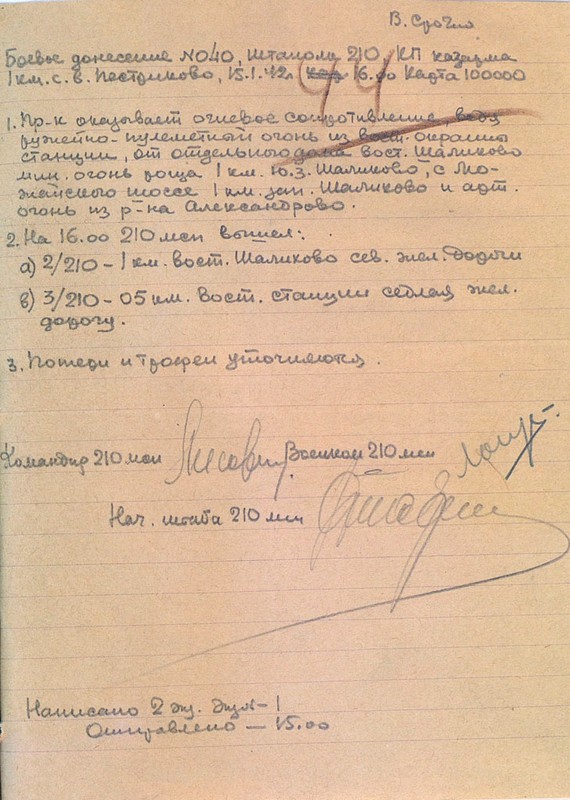 В. Срочно
Боевое донесение №040, штаполк 210, КП казарма
1 км. с. в. Пестриково, 15.1.42г. 16.00 Карта 100000
94
1. Пр-к оказывает огневое сопротивление, ведя
ружейно-пулеметный огонь из вост. окраины
станции, от отдельного дома вост. Шаликово
мин. огонь роща 1 км. ю.з. Шаликово, с Мо-
жайского шоссе 1 км. зап. Шаликово и арт.
огонь из р-на Александрово.
2. На 16.00 210 мсп вышел:
а) 2/210 - 1 км. вост. Шаликово сев. жел. дороги
в) 3/210 - 05 км. вост. станции седлая жел.
дорогу.
3. Потери и трофеи уточняются.
Командир 210 мсп Военком 210 мсп
Нач. штаба 210 мсп
Написано 2 экз. экз - 1
Отправлено - 15.00